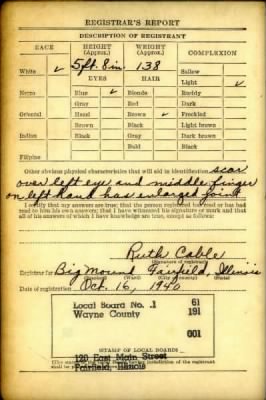 REGISTRAR'S REPORT
DESCRIPTION OF REGISTRANT
RACE HEIGHT (Approx.) WEIGHT (Approx.) COMPLEXION
White ✓ 5 ft. 8 in. 138 Sallow
EYES HAIR Light ✓
Negro Blue ✓ Blonde Ruddy
Gray Red Dark
Oriental Hazel Brown ✓ Freckled
Brown Black Light brown
Indian Black Gray Dark brown
Bald Black
Filipino
Other obvious physical characteristics that will aid in identification scar
over left eye and middle finger
on left hand has enlarged joint
I certify that my answers are true; that the person registered has read or has had
read to him his own answers; that I have witnessed his signature or mark and that
all of his answers of which I have knowledge are true, except as follows:
Ruth Cable
(Signature of registrar)
Registrar for Big Mound Fairfield, Illinois
(Precinct) (Ward) (City or county) (State)
Date of registration Oct. 16, 1940
Local Board No. 1 61
Wayne County 191
001
STAMP OF LOCAL BOARD
120 East Main Street
Fairfield, Illinois